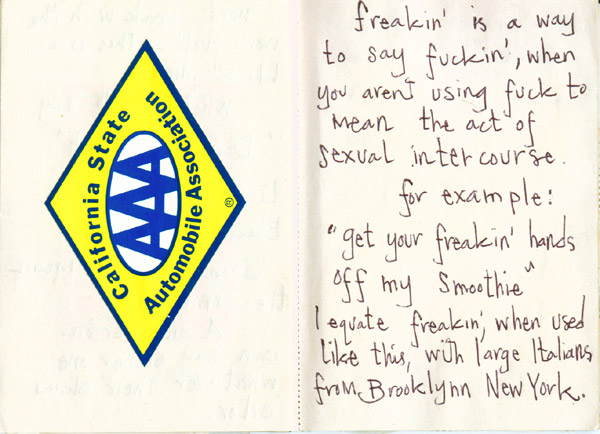 California State
AAA
Automobile Association
®
freakin' is a way
to say fuckin', when
you aren't using fuck to
mean the act of
sexual intercourse.
for example:
"get your freakin' hands
off my Smoothie"
I equate freakin', when used
like this, with large Italians
from Brooklynn New York.